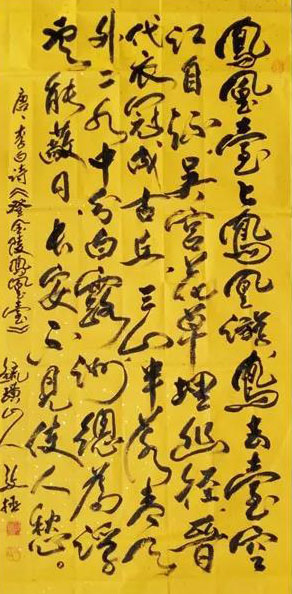 鳳凰臺上鳳凰游鳳去臺空
江自流吳宮花草埋幽徑晉
代衣冠成古丘三山半落青天
外二水中分白露洲總為浮
雲能蔽日長安不見使人愁。
唐、李白詩《登金陵鳳凰臺》
山人